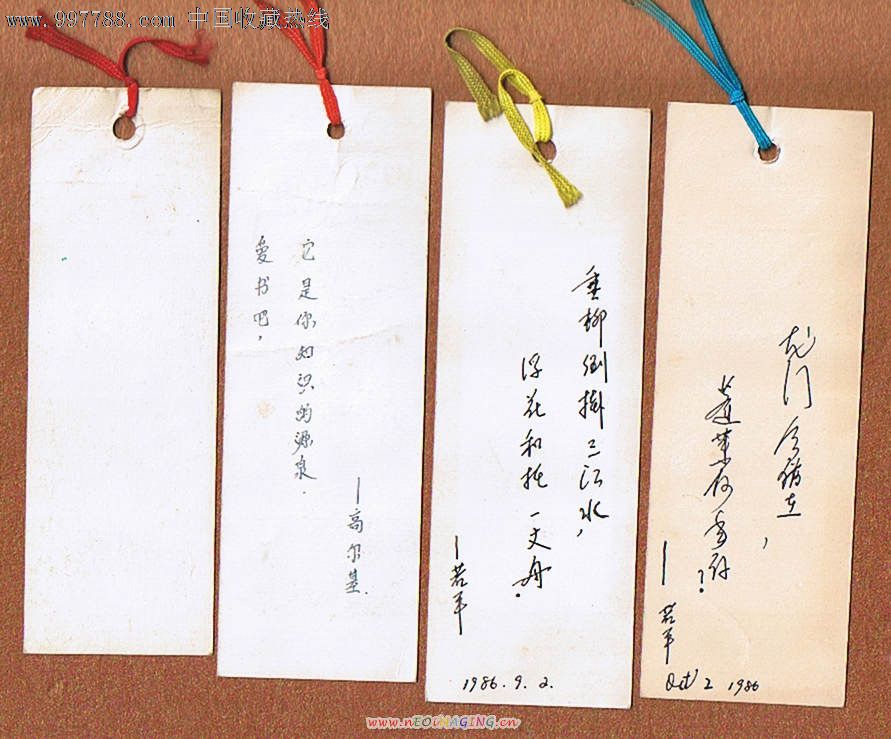 www.997788.com 中国收藏热线
爱书吧,
它是你知识的源泉.
—高尔基.
垂柳倒掛三江水,
浮花和托一丈舟.
—若平
1986.9.2.
龙门今犹在,
蓬莱何?
—若平
Oct 2 1986
www.nEOiMAGING.cn